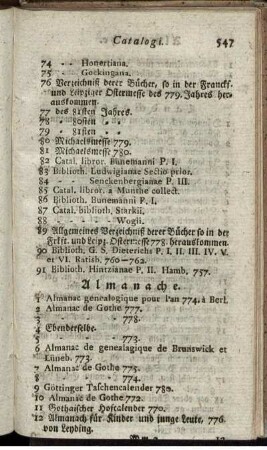 Catalogi. 547
74 - - Honertiana.
75 - - Gockingana.
76 Verzeichniß derer Bücher, so in der Franckf.
und Leipziger Ostermesse des 779. Jahres her-
auskommen.
77 des 81sten Jahres.
78 - 80sten - -
79 - 81sten - -
80 Michaelsmesse 779.
81 Michaelsmesse 780.
82 Catal. libror. Bunemanni P. I.
83 Biblioth. Ludwigianae Sectio prior.
84 - - Senckenbergianae P. III.
85 Catal. libror. a Munthe collect.
86 Biblioth. Bunemanni P. I.
87 Catal. biblioth. Starkii.
88 - - - - Wogii.
89 Allgemeines Verzeichniß derer Bücher so in der
Frkft. und Leipz. Ostermesse 778. herauskommen.
90 Biblioth. G. S. Dieterichs P I. II. III. IV. V.
et VI. Ratisb. 760-762.
91 Biblioth. Hintzianae P. II. Hamb. 757.
Almanache.
1 Almanac genealogique pour l'an 774. à Berl.
2 Almanac de Gothe 777.
3 - - - 778.
4 Ebenderselbe.
5 - - - 773.
6 Almanac de genealagique de Brunswick et
Lüneb. 773.
7 Almanac de Gothe 775.
8 - - - 774.
9 Göttinger Taschencalender 780.
10 Almanac de Gothe 772.
11 Gothaischer Hofcalender 770.
12 Almanach für Kinder und junge Leute, 776.
von Leyding.